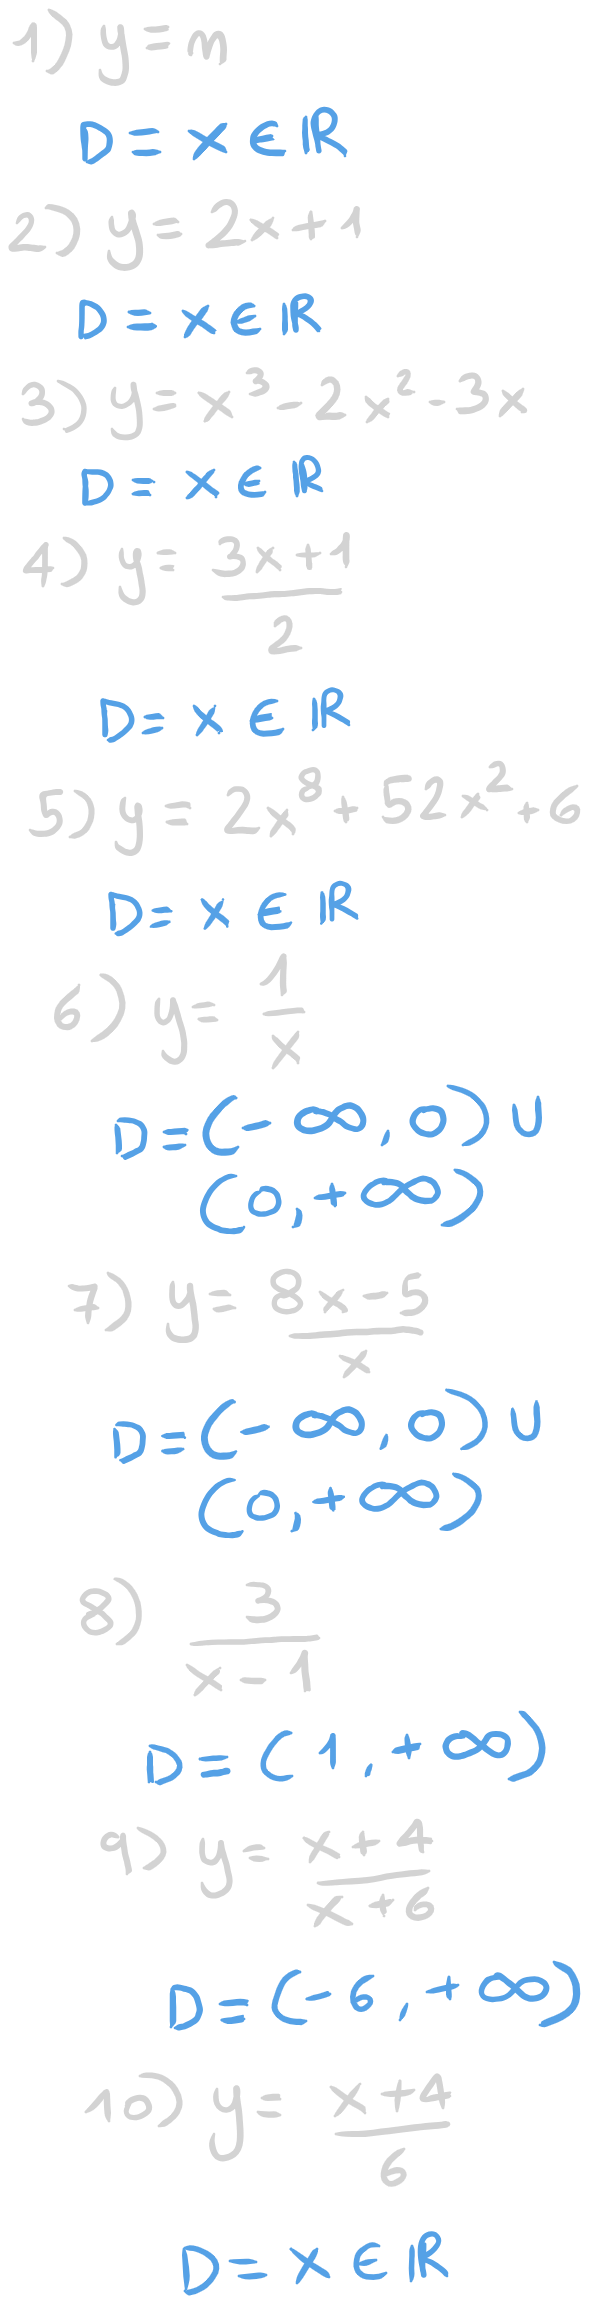 1) y = n
D = x ∈ ℝ
2) y = 2x + 1
D = x ∈ ℝ
3) y = x³ - 2x² - 3x
D = x ∈ ℝ
4) y = (3x + 1)/2
D = x ∈ ℝ
5) y = 2x⁸ + 52x² + 6
D = x ∈ ℝ
6) y = 1/x
D = (-∞, 0) ∪
(0, +∞)
7) y = (8x - 5)/x
D = (-∞, 0) ∪
(0, +∞)
8) 3/(x - 1)
D = (1, +∞)
9) y = (x + 4)/(x + 6)
D = (-6, +∞)
10) y = (x + 4)/6
D = x ∈ ℝ